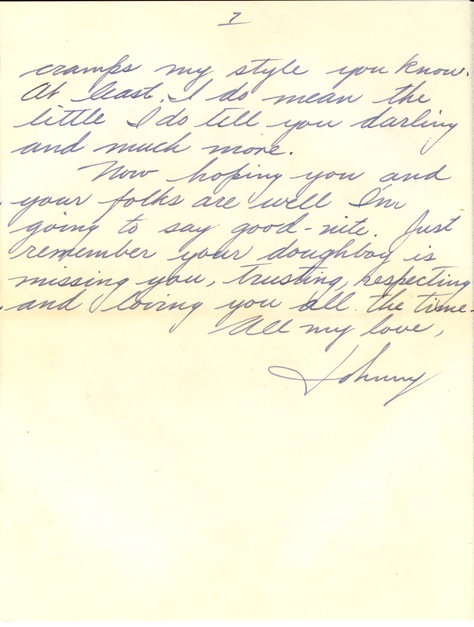 7
cramps my style you know.
At least, I do mean the
little I do tell you darling
and much more.
Now hoping you and
your folks are well I'm
going to say good-nite. Just
remember your doughboy is
missing you, trusting, respecting
and loving you all the time.
All my love,
Johnny